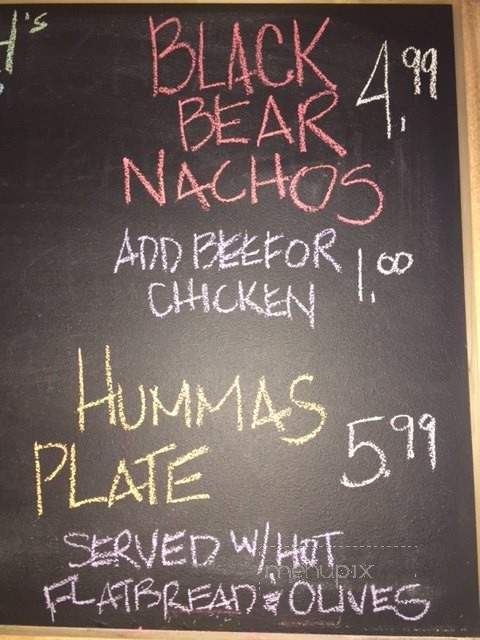 d's
BLACK
BEAR 4.99
NACHOS
ADD BEEF OR
CHICKEN 1.00
HUMMAS
PLATE 5.99
SERVED W/ HOT
FLATBREAD & OLIVES
menupix